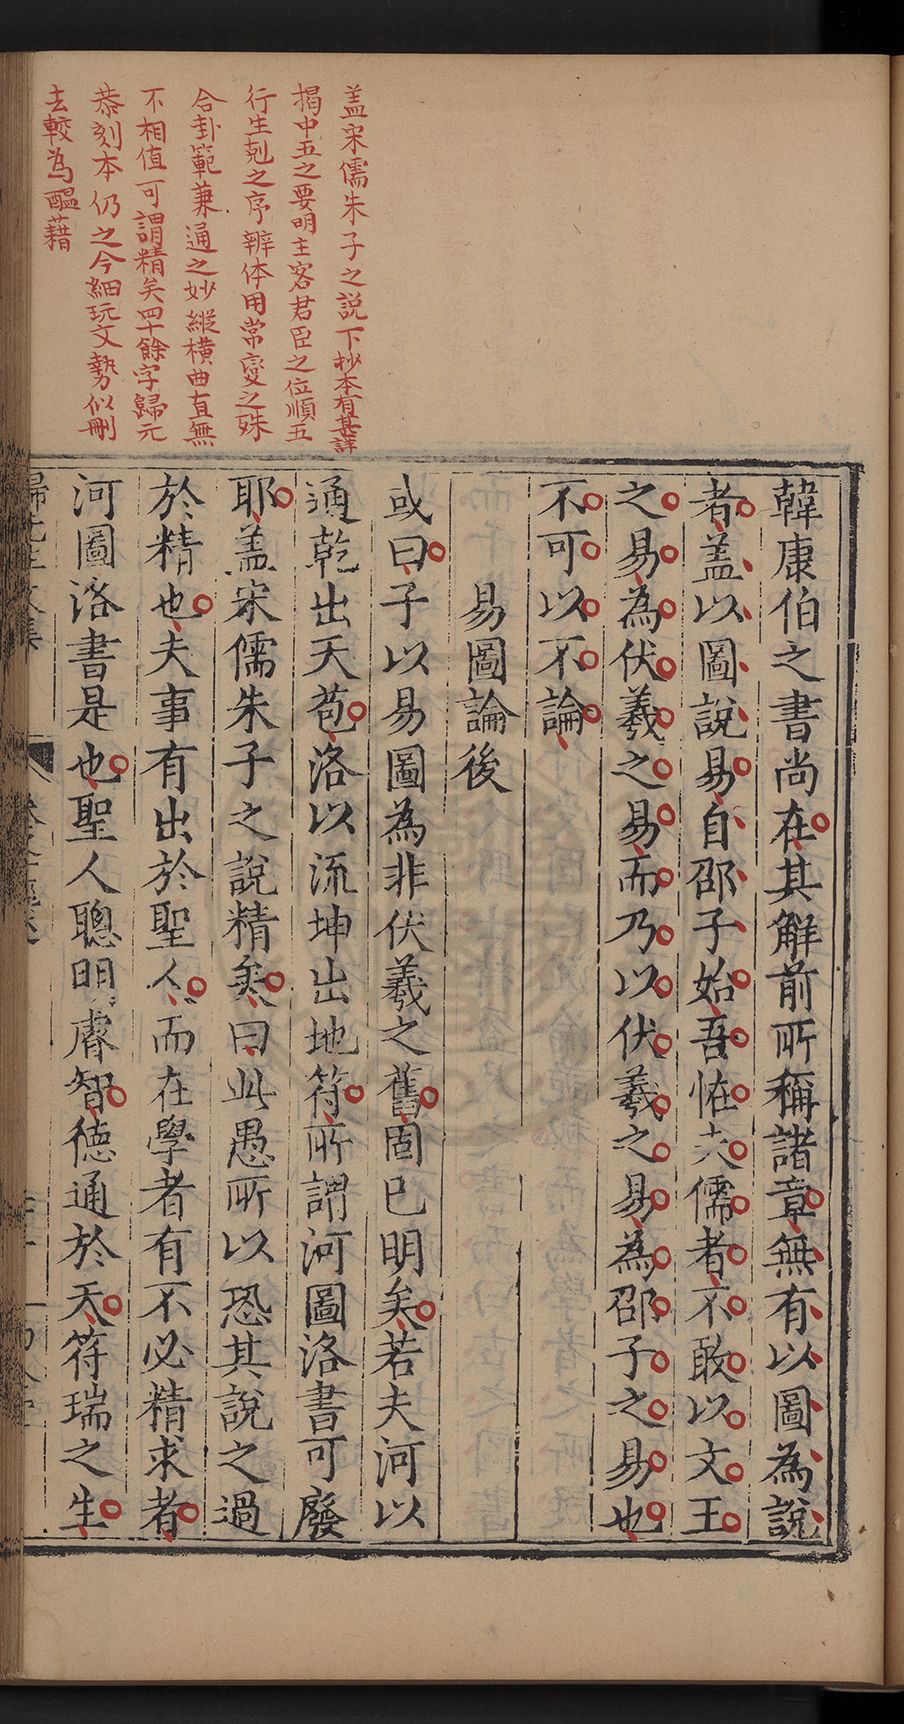 盖宋儒朱子之説下抄本有甚詳
揭中五之要明主客君臣之位順五
行生剋之序辨体用常变之殊
合卦範兼通之妙縱横曲直無
不相值可謂精矣四十餘字歸元
恭刻本仍之今細玩文勢似刪
去較為醖藉
韓康伯之書尚在其解前所稱諸章無有以圖為說
者蓋以圖說易自邵子始吾怪夫儒者不敢以文王
之易為伏羲之易而乃以伏羲之易為邵子之易也
不可以不論
易圖論後
或曰子以易圖為非伏羲之舊固已明矣若夫河以
通乾出天苞洛以流坤出地符所謂河圖洛書可廢
耶蓋宋儒朱子之說精矣曰此愚所以恐其說之過
於精也夫事有出於聖人而在學者有不必精求者
河圖洛書是也聖人聰明睿智德通於天符瑞之生